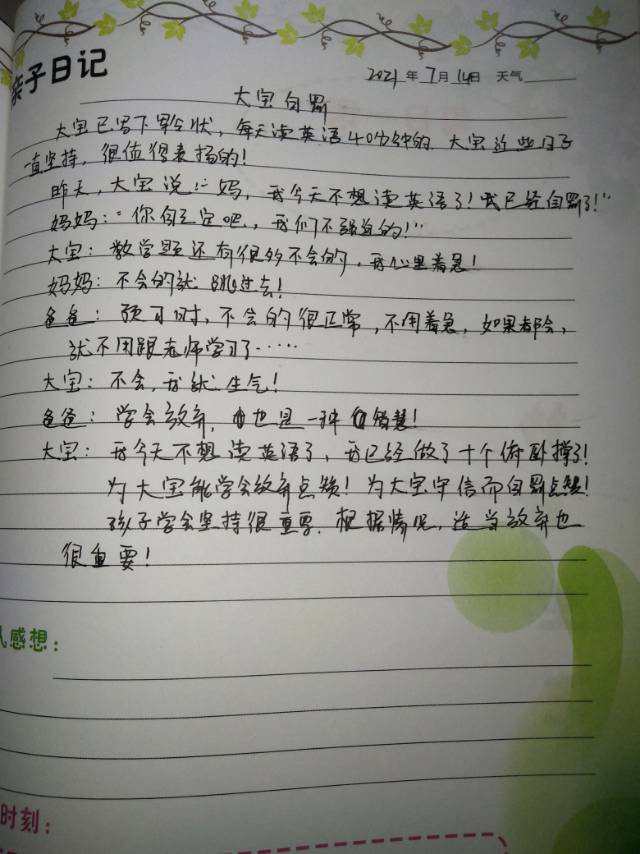 亲子日记
2021年7月14日 天气
大宝自罚
大宝已写下军令状，每天读英语40分钟的，大宝这些日子
一直坚持，很值得表扬的！
昨天，大宝说："妈，我今天不想读英语了！我已经自罚了！"
妈妈："你自己定吧，我们不强迫的！"
大宝：数学题还有很多不会的，我心里着急！
妈妈：不会的就跳过去！
爸爸：预习时，不会的很正常，不用着急，如果都会，
就不用跟老师学习了……
大宝：不会，我就生气！
爸爸：学会放弃，也是一种智慧！
大宝：我今天不想读英语了，我已经做了十个俯卧撑了！
为大宝能学会放弃点赞！为大宝守信而自罚点赞！
孩子学会坚持很重要，根据情况，适当放弃也
很重要！
儿感想：
时刻：